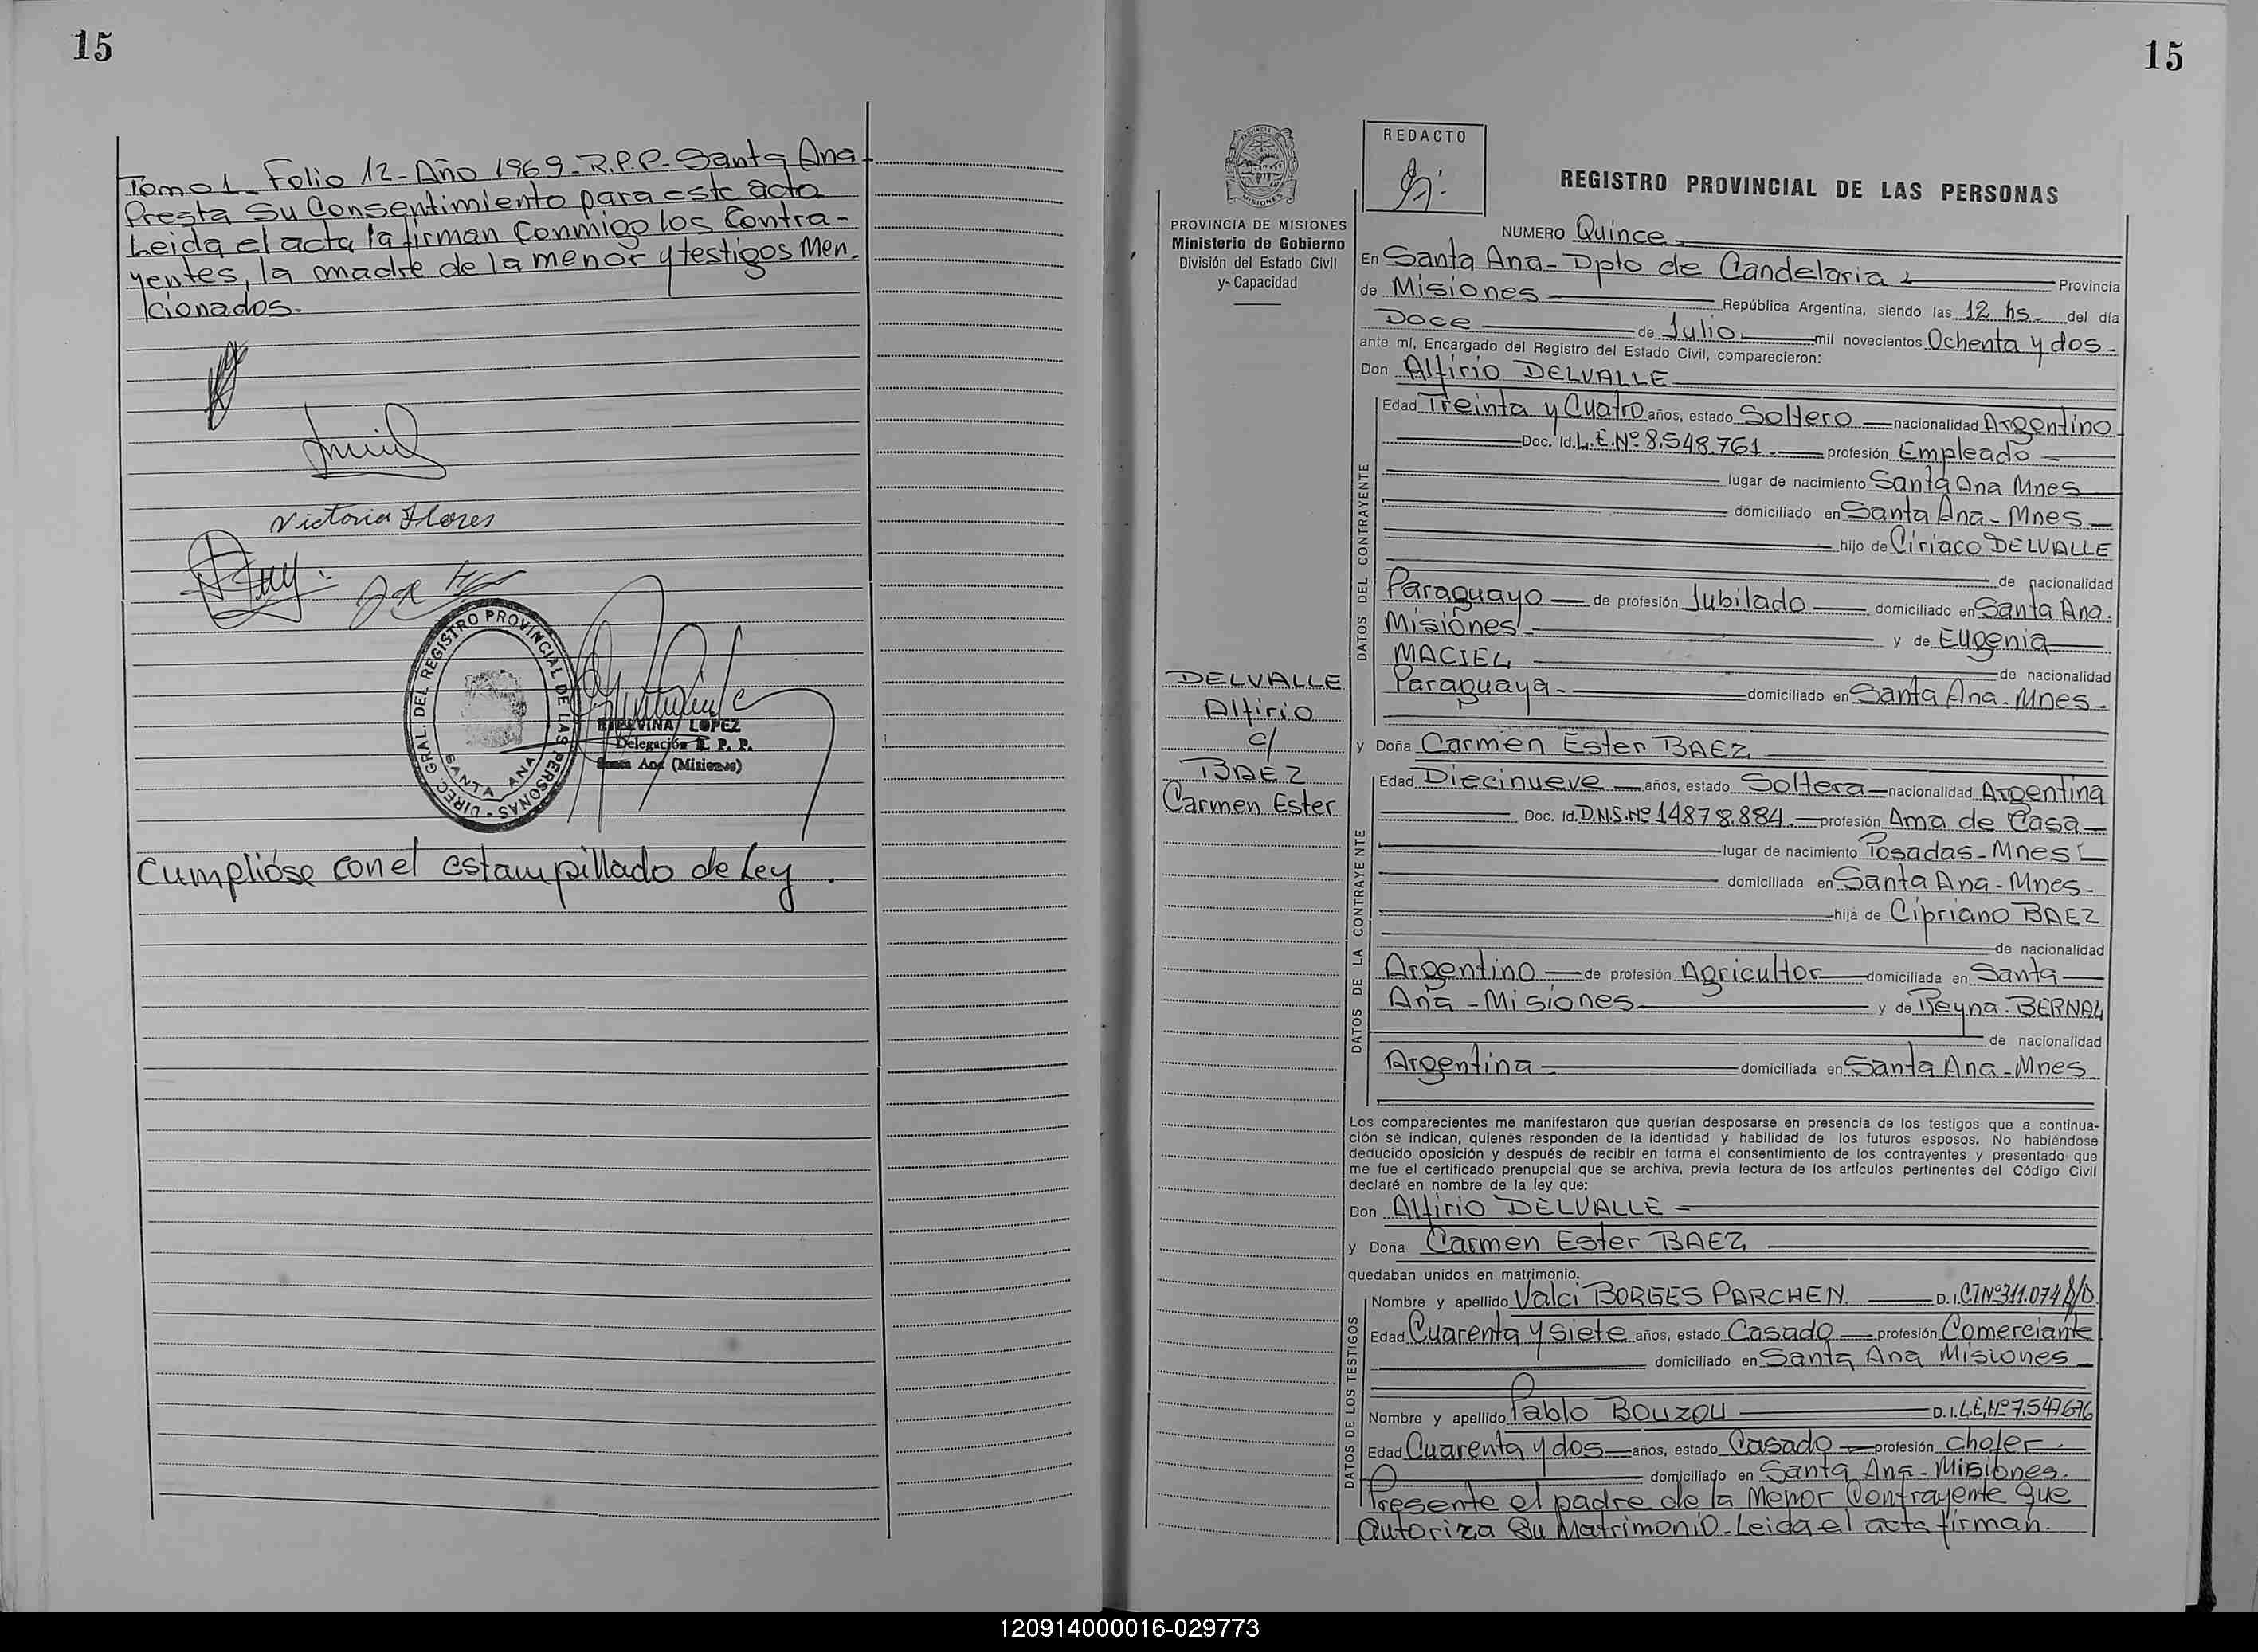 15
Tomo 1_ Folio 12_ Año 1969_ R.P.P._ Santa Ana
Presta Su Consentimiento para este acta
Leida el acta la firman Conmigo los Contra-
yentes, la madre de la menor y testigos Men-
cionados.
Victoria Flores
DIREC. GRAL. DEL REGISTRO PROVINCIAL DE LAS PERSONAS -
SANTA ANA
ETELVINA LOPEZ
Delegación R. P. P.
Santa Ana (Misiones)
Cumplióse con el estampillado de Ley.
15
PROVINCIA DE MISIONES
Ministerio de Gobierno
División del Estado Civil
y Capacidad
DELVALLE
Alfirio
c/
BAEZ
Carmen Ester
REDACTO
REGISTRO PROVINCIAL DE LAS PERSONAS
NUMERO Quince
En Santa Ana - Dpto de Candelaria Provincia
de Misiones República Argentina, siendo las 12 hs. del día
Doce de Julio mil novecientos Ochenta y dos.
ante mí, Encargado del Registro del Estado Civil, comparecieron:
Don Alfirio DELVALLE
DATOS DEL CONTRAYENTE
Edad Treinta y Cuatro años, estado Soltero nacionalidad Argentino
Doc. Id. L.E.Nº 8.548.761 profesión Empleado
lugar de nacimiento Santa Ana Mnes
domiciliado en Santa Ana - Mnes
hijo de Ciriaco DELVALLE
de nacionalidad
Paraguayo de profesión Jubilado domiciliado en Santa Ana.
Misiones y de Eugenia
MACIEL de nacionalidad
Paraguaya domiciliado en Santa Ana. Mnes
y Doña Carmen Ester BAEZ
DATOS DE LA CONTRAYENTE
Edad Diecinueve años, estado Soltera nacionalidad Argentina
Doc. Id. D.N.S.Nº 14878.884. profesión Ama de Casa
lugar de nacimiento Posadas - Mnes
domiciliada en Santa Ana - Mnes.
hija de Cipriano BAEZ
de nacionalidad
Argentino de profesión Agricultor domiciliada en Santa
Ana - Misiones y de Reyna. BERNAL
de nacionalidad
Argentina domiciliada en Santa Ana - Mnes
Los comparecientes me manifestaron que querían desposarse en presencia de los testigos que a continua-
ción se indican, quienes responden de la identidad y habilidad de los futuros esposos. No habiéndose
deducido oposición y después de recibir en forma el consentimiento de los contrayentes y presentado que
me fue el certificado prenupcial que se archiva, previa lectura de los artículos pertinentes del Código Civil
declaré en nombre de la ley que:
Don Alfirio DELVALLE
y Doña Carmen Ester BAEZ
quedaban unidos en matrimonio.
DATOS DE LOS TESTIGOS
Nombre y apellido Valci BORGES PARCHEN D.I. C.I Nº 311.074
Edad Cuarenta y Siete años, estado Casado profesión Comerciante
domiciliado en Santa Ana Misiones
Nombre y apellido Pablo BOUZOU D.I. L.E, Nº 7.547676
Edad Cuarenta y dos años, estado Casado profesión chofer.
domiciliado en Santa Ana - Misiones.
Presente el padre de la Menor Contrayente que
autoriza Su Matrimonio_ Leida el acta firman.
120914000016-029773